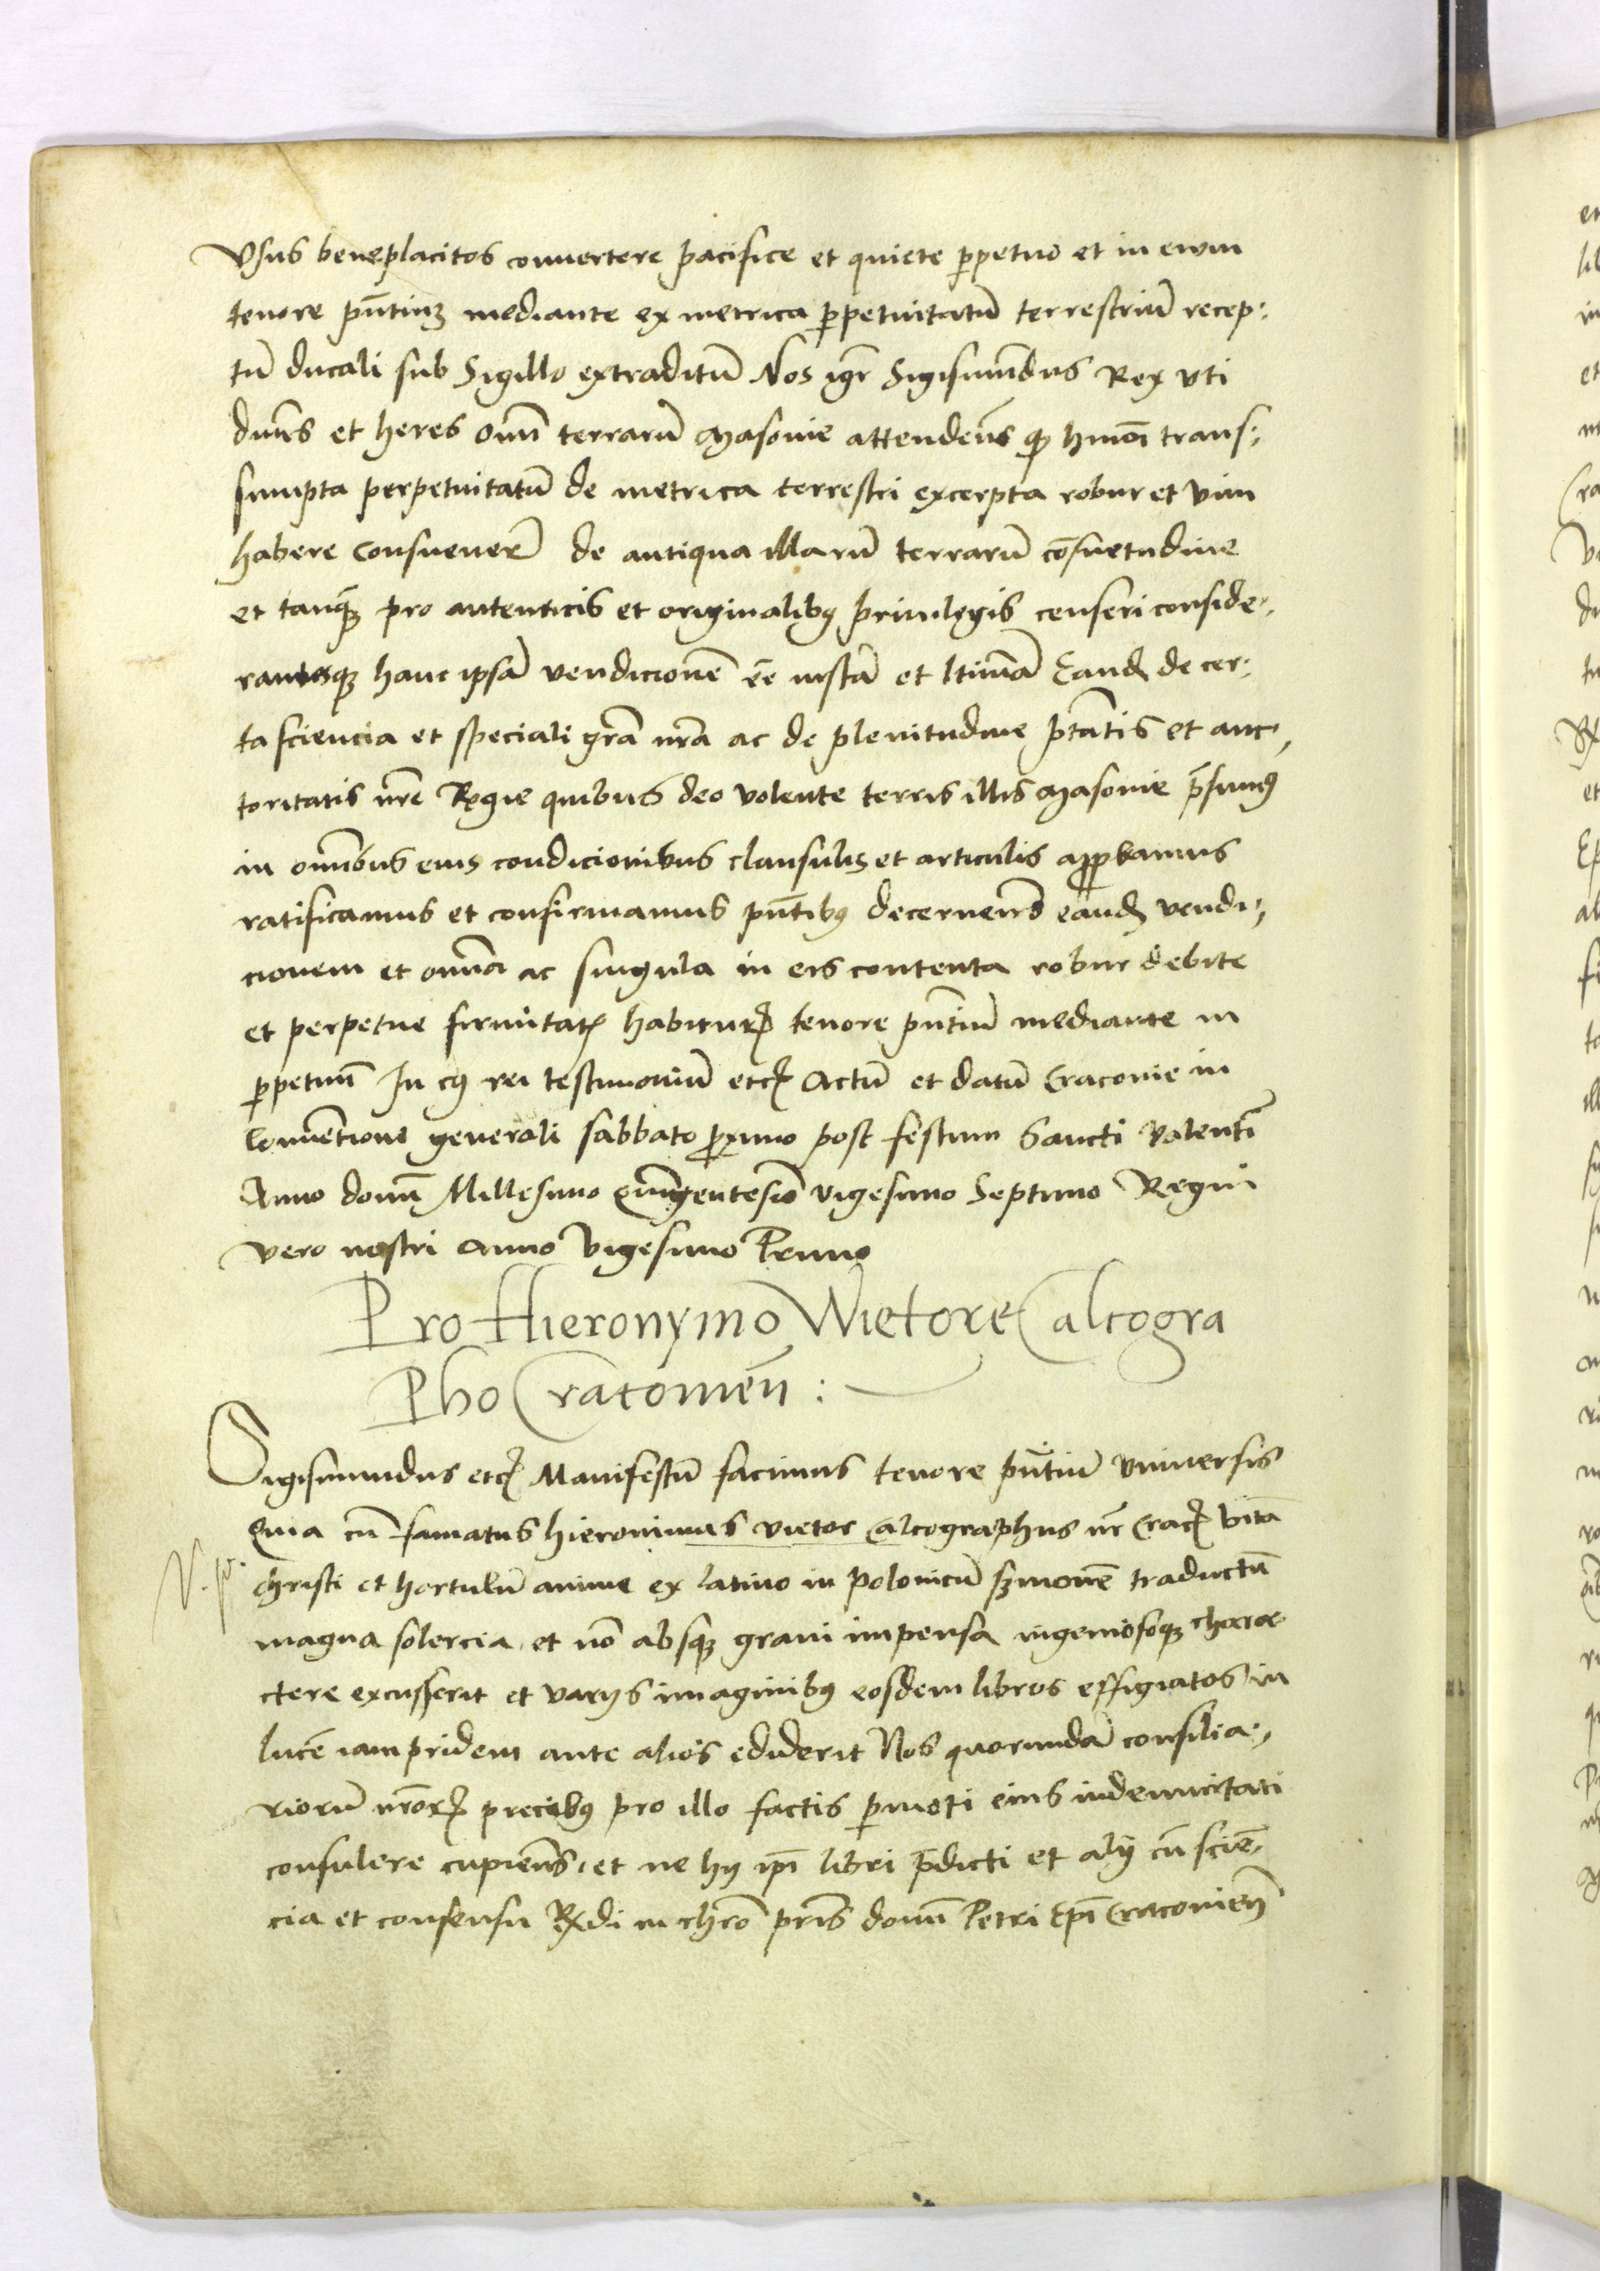 Vsus beneplacitos conuertere pacifice et quiete ꝑpetuo et in ewm
tenore pn̄tiuꝫ mediante ex metrica ꝑpetuitatū terrestriū recep:
tū ducali sub Sigillo extraditū Nos igr̄ Sigismūdus Rex vti
dun̄s et heres om̄ terrarū Masouie attenden̄s ꝙ hmōi trans:
sumpta perpetuitatū de metrica terrestri excerpta robur et vim
habere consueuer̄ de antiqua illarū terrarū cōsuetudine
et tanqꝫ pro autenticis et originalibꝰ priuilegijs censeri conside:
rantesqꝫ hanc ipsā vendicionē eē iustā et ltimā Eandꝫ de cer:
ta sciencia et speciali grā nrā ac de plenitudine ptātis et auc:
toritatis nrē Regie quibus deo volente terris illis Masouie p̄sumꝰ
in om̄ibus eius condicionibus clausulis et articulis approbamus
ratificamus et confirmamus pn̄tibꝰ decernen̄s eandꝫ vendi:
cionem et om̄ia ac singula in eis contenta robur debite
et perpetue firmitatꝭ habiturꝝ tenore pn̄tiū mediante in
ꝑpetuū In cꝰ rei testimoniū etcꝭ Actū et datū Cracouie in
Conuētione generali sabbato ꝓximo post festum Sancti valentī
Anno domī Millesimo quīgentesīo vigesimo Septimo Regni
vero nostri anno vigesimo Primo
Pro Hieronymo Wietore Calcogra
Pho Cracouien̄ :
Sigismundus etcꝭ Manifestū facimus tenore pn̄tiū vniuersis
Quia cū famatus hieronimus vietor calcographus nr̄ Cracꝭ vitā
christi et hortulū anime ex latino in polonicū ẜmonē traductū
magna solercia et nō absqꝫ graui impensa ingeniosoqꝫ chara
ctere excusserit et varijs imaginibꝰ eosdem libros effigiatos in
lucē iampridem ante alios ediderit Nos quorundā consilia:
riorū nrōrꝝ precibꝰ pro illo factis ꝑmoti eius indemnitati
consulere cupien̄s, et ne hij ip̄i libri p̄dicti et alij cū sciē:
cia et consensu Rꝫdi in chrō prīs domī Petri Ep̄i Cracouien̄